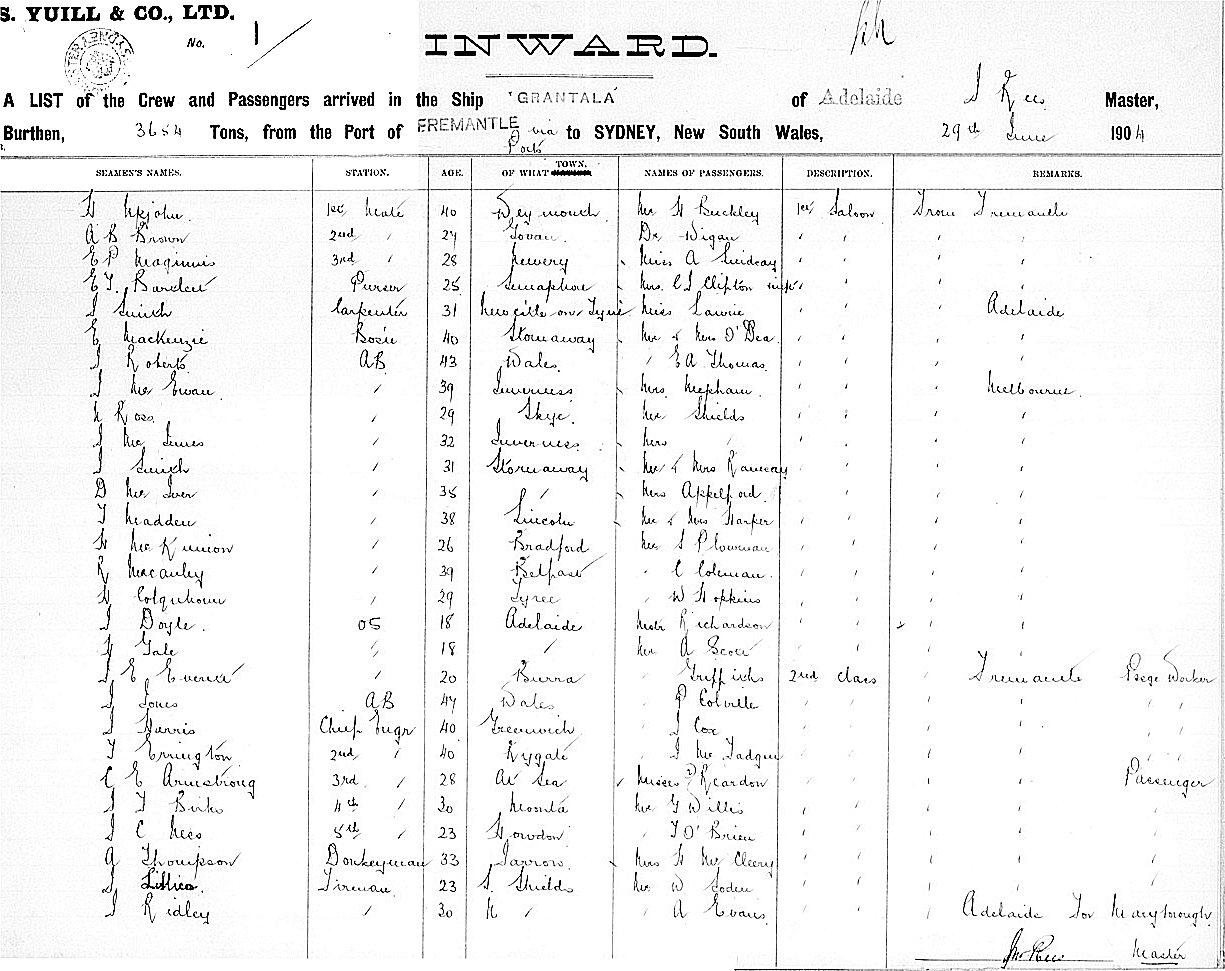 S. YUILL & CO., LTD.
No. 1
INWARD.
A LIST of the Crew and Passengers arrived in the Ship 'GRANTALA' of Adelaide J Rees Master,
Burthen, 3654 Tons, from the Port of FREMANTLE via Ports to SYDNEY, New South Wales, 29th June 1904
SEAMEN'S NAMES. STATION. AGE. OF WHAT TOWN. NAMES OF PASSENGERS. DESCRIPTION. REMARKS.
H Upjohn. 1st Mate 40 Weymouth. Mr H Buckley 1st Saloon From Fremantle
A B Brown 2nd " 24 Govan. Dr Wigan " " " "
E P Maginnis 3rd " 28 Newery Miss A " " " "
E T. Purser 25 Semaphore Mrs. C S Clifton " " "
J Smith Carpenter 31 Newcastle on Tyne Miss Lawrie " " " Adelaide
E Mackenzie Bosun 40 Stornaway Mr & Mrs O'Dea " " " "
J Roberts AB 43 Wales. " E A Thomas. " " " "
J Mc Ewan " 39 Inverness Mrs. Mepham. " " " Melbourne
Ross " 29 Skye. Mr Shields " " " "
J Mc Innes " 32 Inverness Mrs " " " " "
J Smith " 31 Stornaway Mr & Mrs Ramsay " " " "
D Mc Iver " 35 " Mrs Appelford. " " " "
T Madden " 38 Lincoln Mr & Mrs Harper " " " "
H Mc Kinnon " 26 Bradford Mr S Plowman " " " "
R Macauley " 39 Belfast " C Coleman. " " " "
Colquhoun " 29 Tyree " W Hopkins " " " "
J Doyle. OS 18 Adelaide Mstr Richardson " " " "
H Gale " 18 " Mr A Scott " " " "
J E Everett " 20 Burra " Griffiths 2nd class " Fremantle Psge Worker
J Jones AB 47 Wales " P Colville " " " " " "
J Harris Chief Engr 40 Greenwich " J Cox " " " " " "
T Errington 2nd " 40 Rygate " J Mc " " " " " "
C E Armstrong 3rd " 28 At Sea Misses Reardon " " " " Passenger
J T Birks 4th " 30 Moonta Mr G Willis " " " " "
J C Nees 5th " 23 Howdon " T O'Brien " " " " "
A Thompson Donkeyman 33 Jarrow. Mrs H Mc Cleery " " " " "
J Lillico. Fireman. 23 S. Shields Mr W Soden " " " " "
J Ridley " 30 N " " A Evans " " " Adelaide For Maryborough
Jno Rees Master